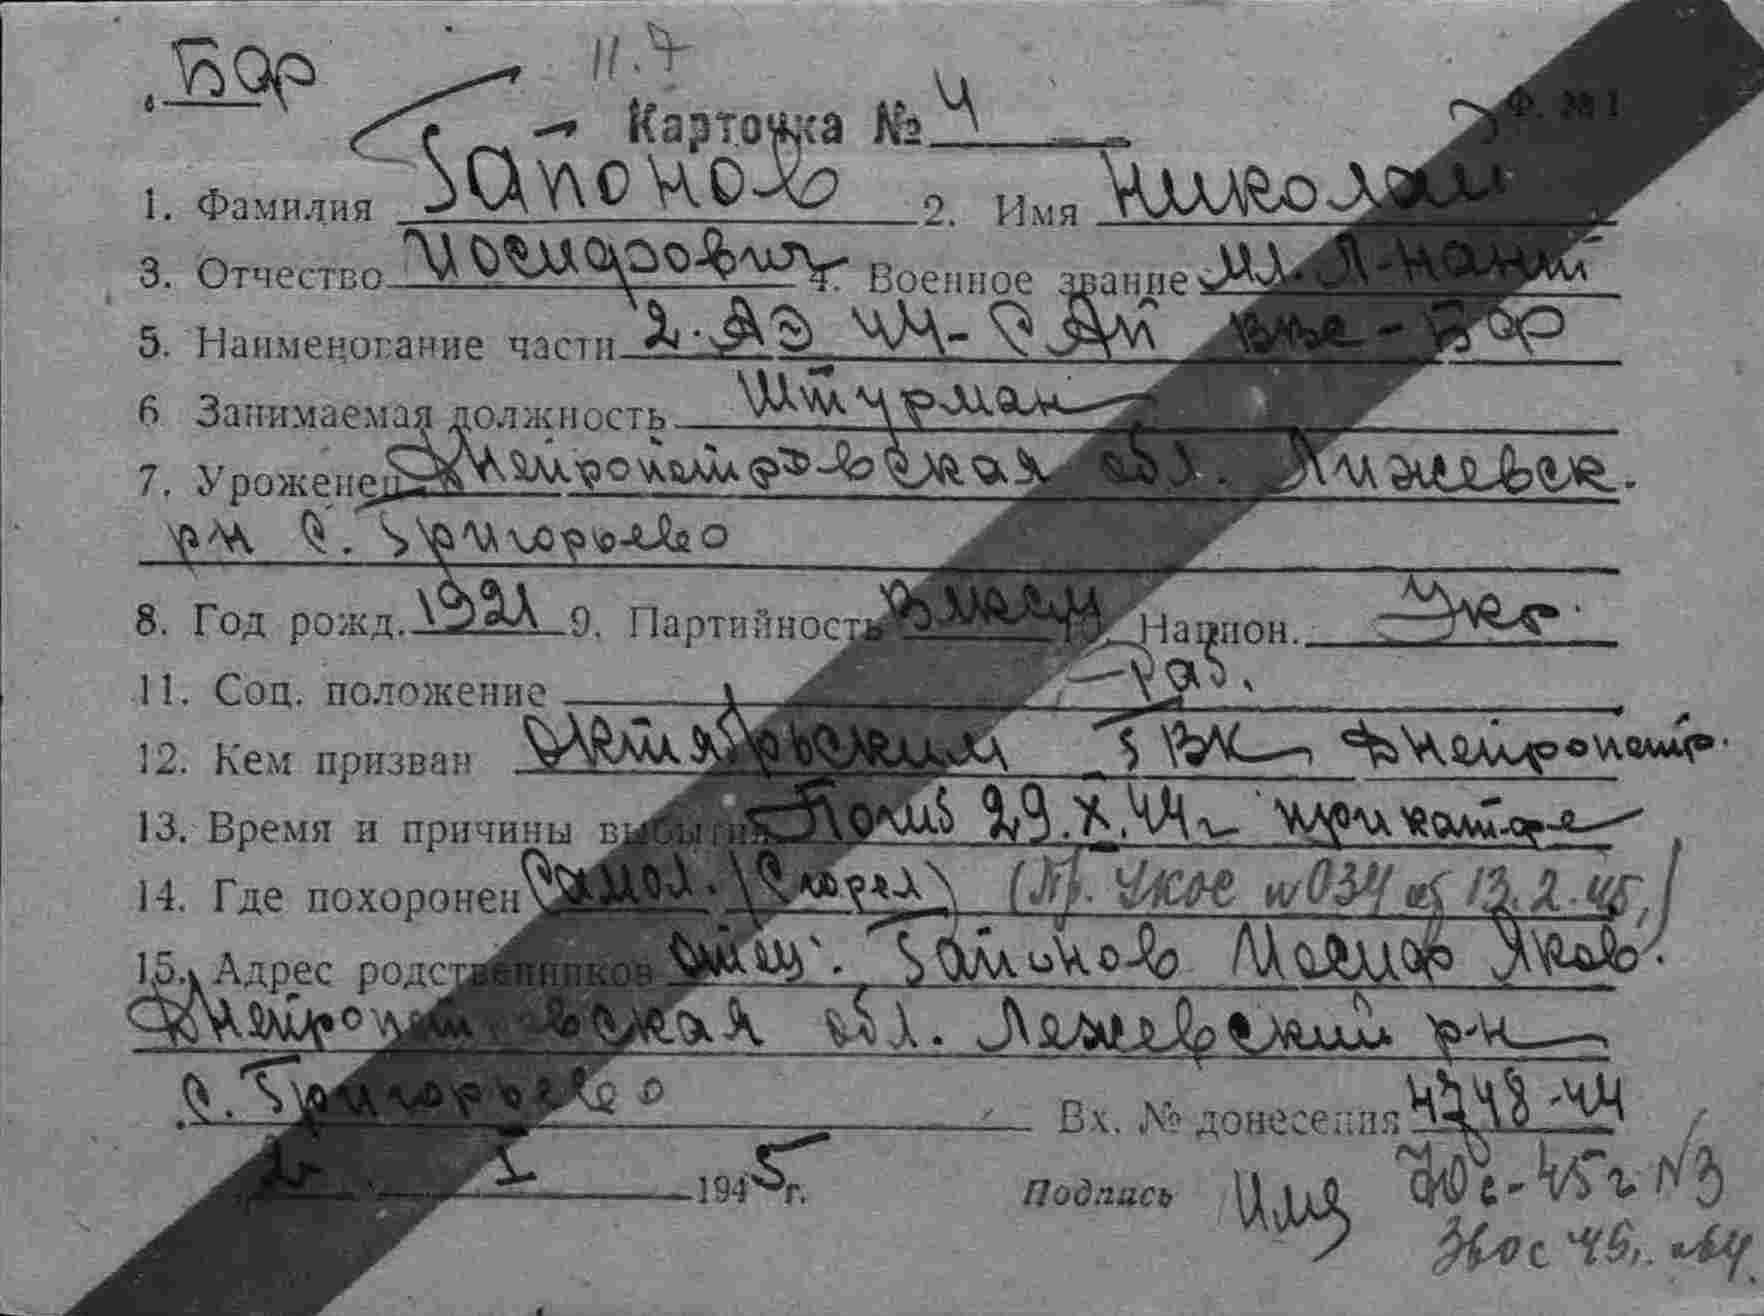 Бар
11.7
Ф. № 1
Карточка № 4
1. Фамилия Гапонов 2. Имя Николай
3. Отчество Иосифович 4. Военное звание мл. л-нант
5. Наименование части 2. АЭ 44-САП ВВС-БОР
6 Занимаемая должность Штурман
7. Уроженец Днепропетровская обл. Лижевск.
рн с. Григорьево
8. Год рожд. 1921 9. Партийность ВЛКСМ 10. Национ. Укр.
11. Соц. положение Раб.
12. Кем призван Октябрьским ГВК Днепропетр.
13. Время и причины выбытия Погиб 29.X.44г при кат-фе
14. Где похоронен Самол. (Сгорел) (Пр. Укос №034 от 13.2.45,)
15. Адрес родственников отец: Гапонов Иосиф Яков.
Днепропетровская обл. Лежевский р-н
с. Григорьево
Вх. № донесения 4748-44
2г I 1945 г. Подпись
-45г №3
45,